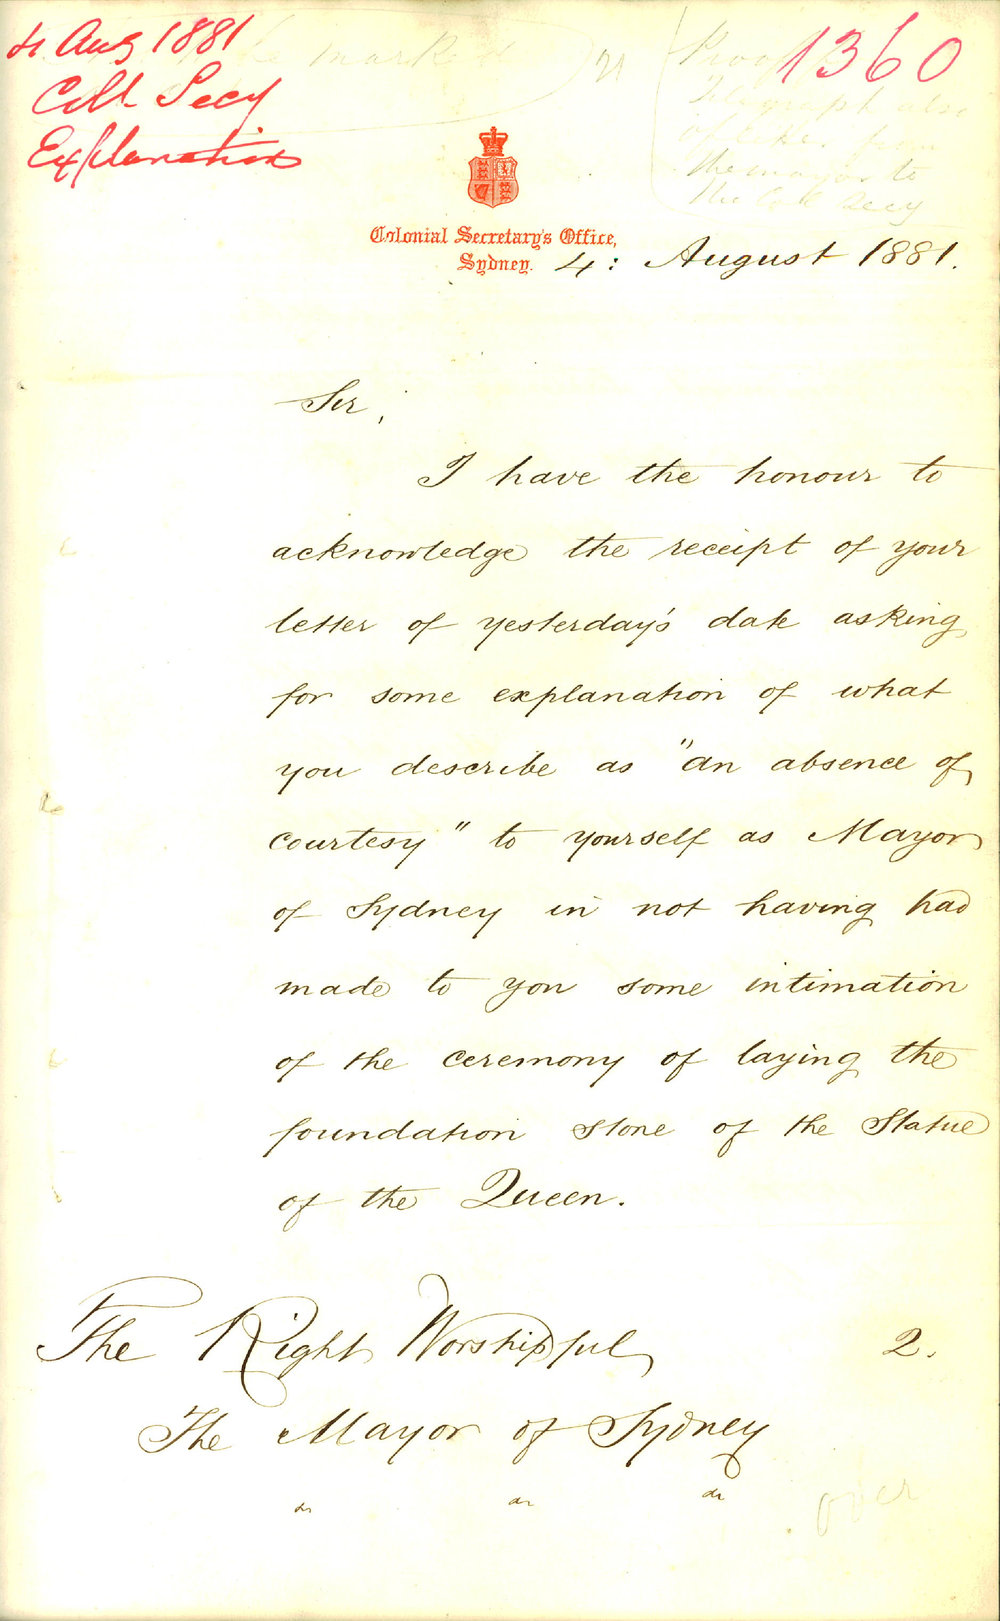 4 Aug 1881
Coll Secy
Explanation
1360
the mayor to
the Col Secy
Colonial Secretary's Office,
Sydney. 4: August 1881.
Sir,
I have the honour to
acknowledge the receipt of your
letter of yesterday's date asking
for some explanation of what
you describe as "an absence of
courtesy" to yourself as Mayor
of Sydney in not having had
made to you some intimation
of the ceremony of laying the
foundation stone of the Statue
of the Queen.
The Right Worshipful
2.
The Mayor of Sydney
over